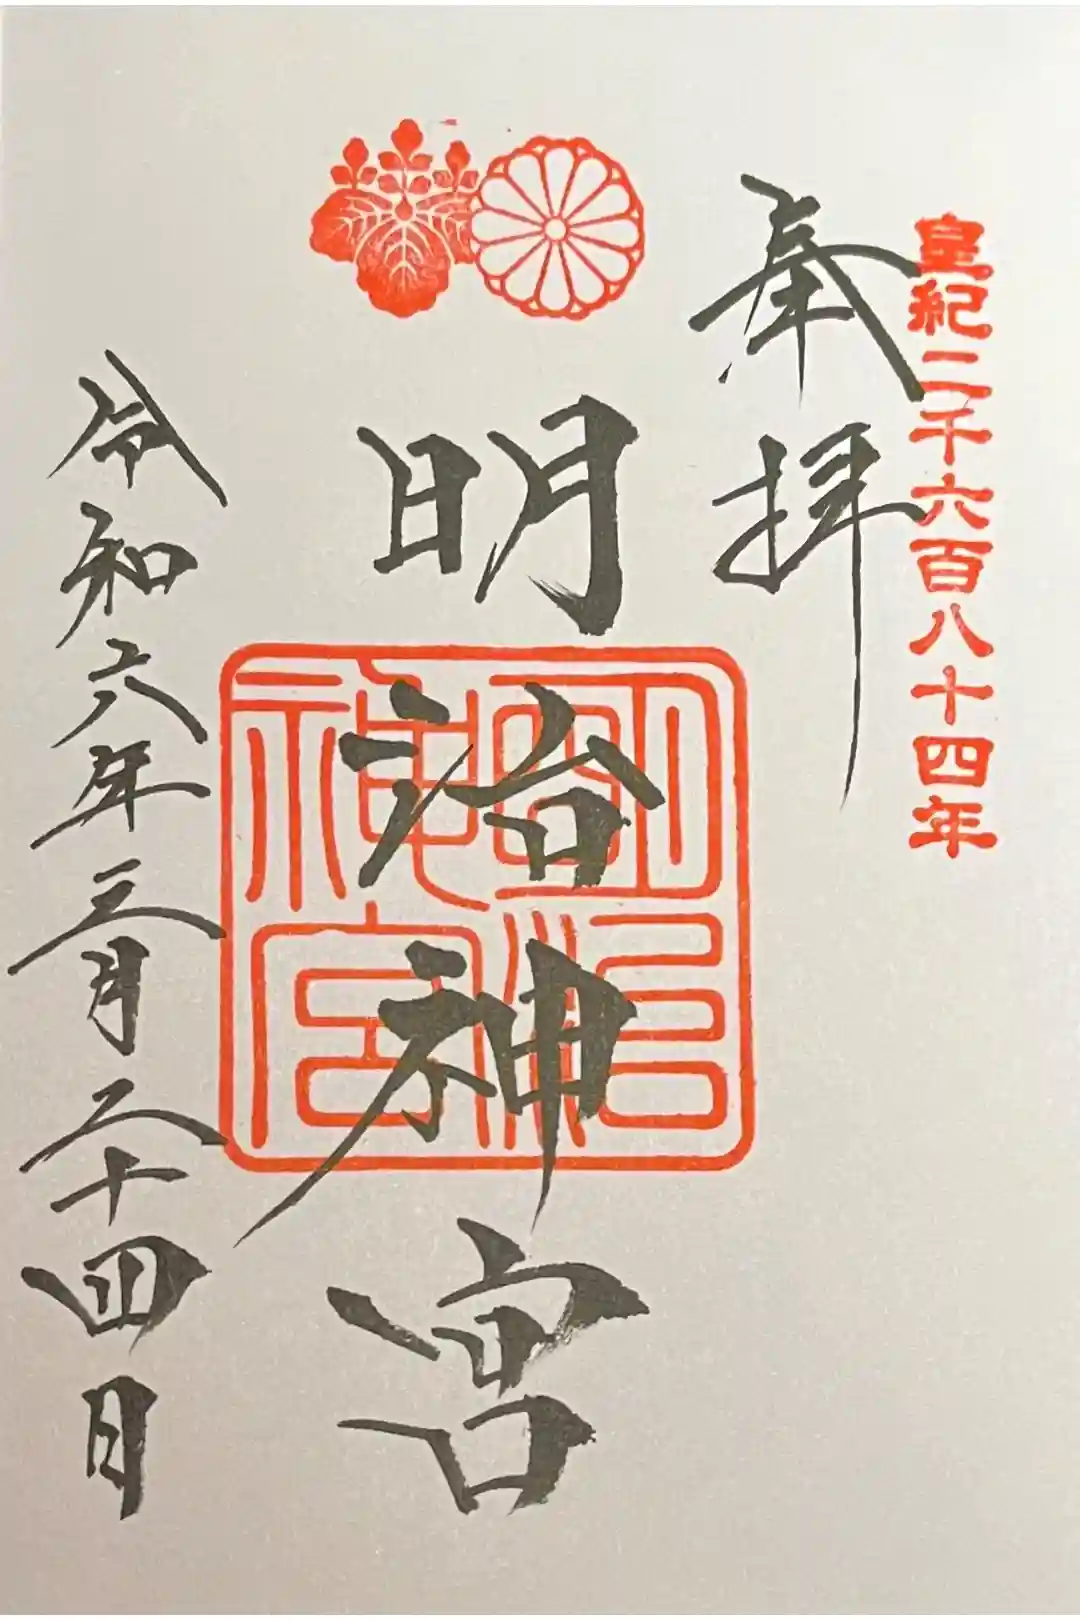 皇紀二千六百八十四年
奉拝
明治神宮
明治神宮
令和六年三月二十四日